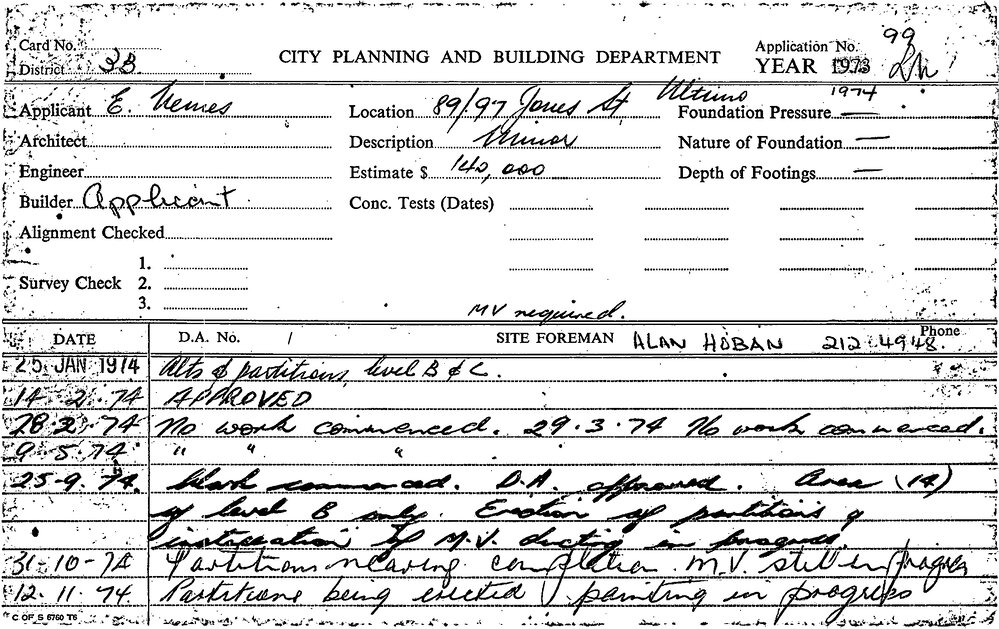 Card No.
District 3B
CITY PLANNING AND BUILDING DEPARTMENT
Application No. 99
YEAR 1973
1974
Applicant E. Nemes
Location 89/97 Jones St Ultimo
Foundation Pressure —
Architect
Description Minor
Nature of Foundation —
Engineer
Estimate $ 140,000
Depth of Footings —
Builder Applicant
Conc. Tests (Dates)
Alignment Checked
1.
Survey Check 2.
3.
MV required.
DATE D.A. No. / SITE FOREMAN ALAN HOBAN Phone 212 4948.
25 JAN 1974 Alts & partitions, level B & C.
14 2 74 APPROVED
28.2.74 No work commenced. 29.3.74 No work commenced.
9.5.74 " " "
25-9.74. Work commenced. D.A. approved. Area (14)
of level B only. Erection of partitions &
installation of M.V. ducting in progress.
31-10-74 Partitions nearing completion. M.V. still in progress
12.11.74. Partitions being erected painting in progress
C OF S 6760 T6